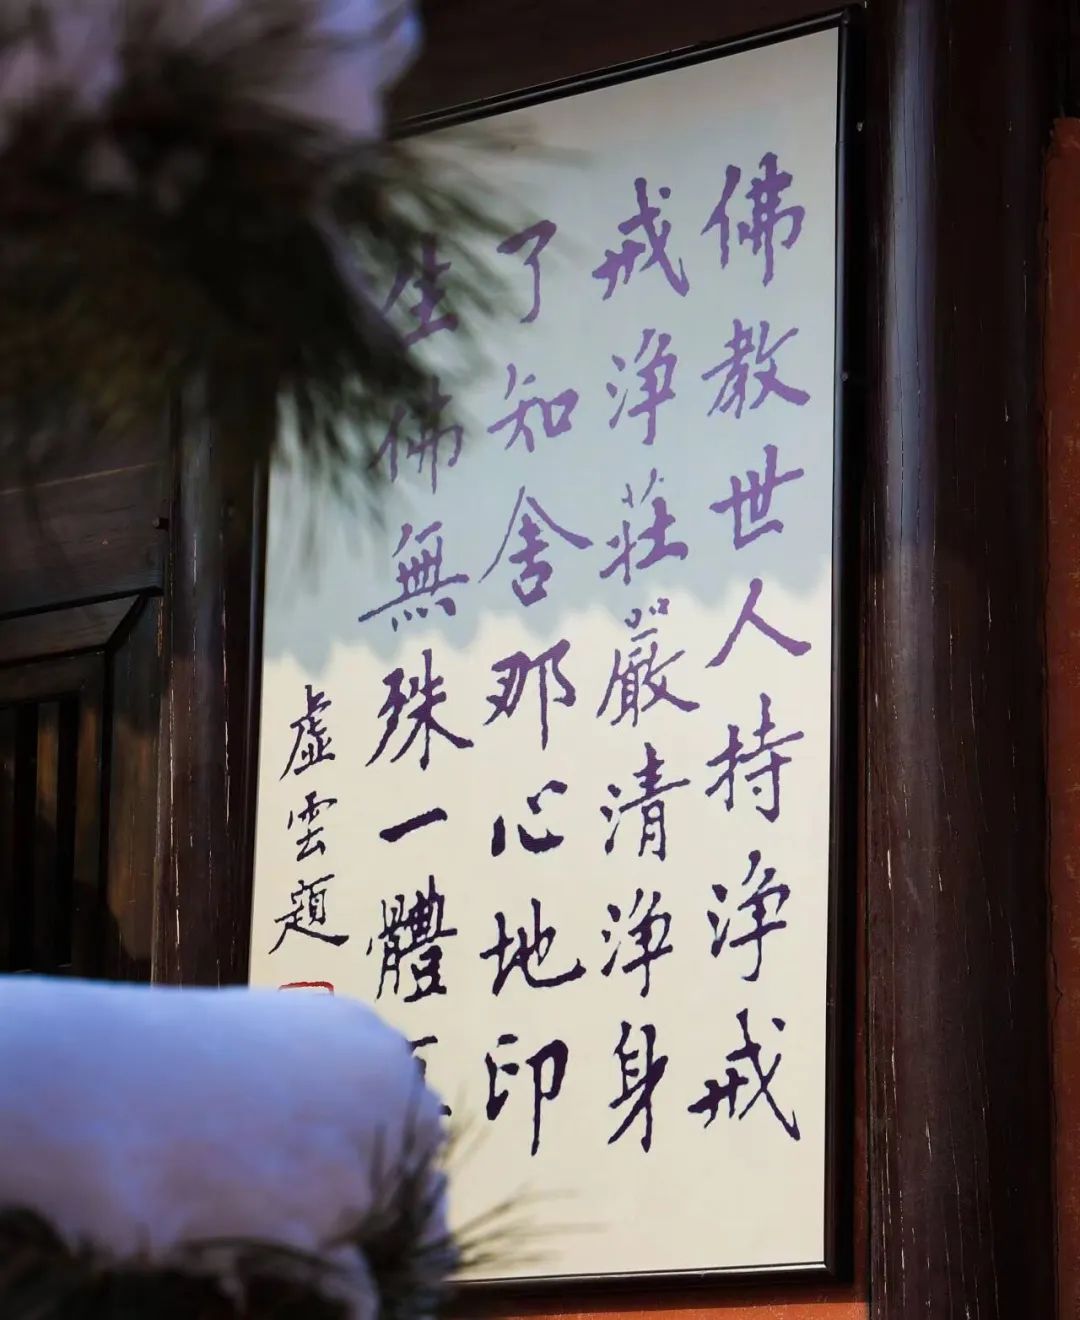 佛教世人持淨戒
戒淨莊嚴清淨身
了知舍那心地印
生佛無殊一體
虛雲題